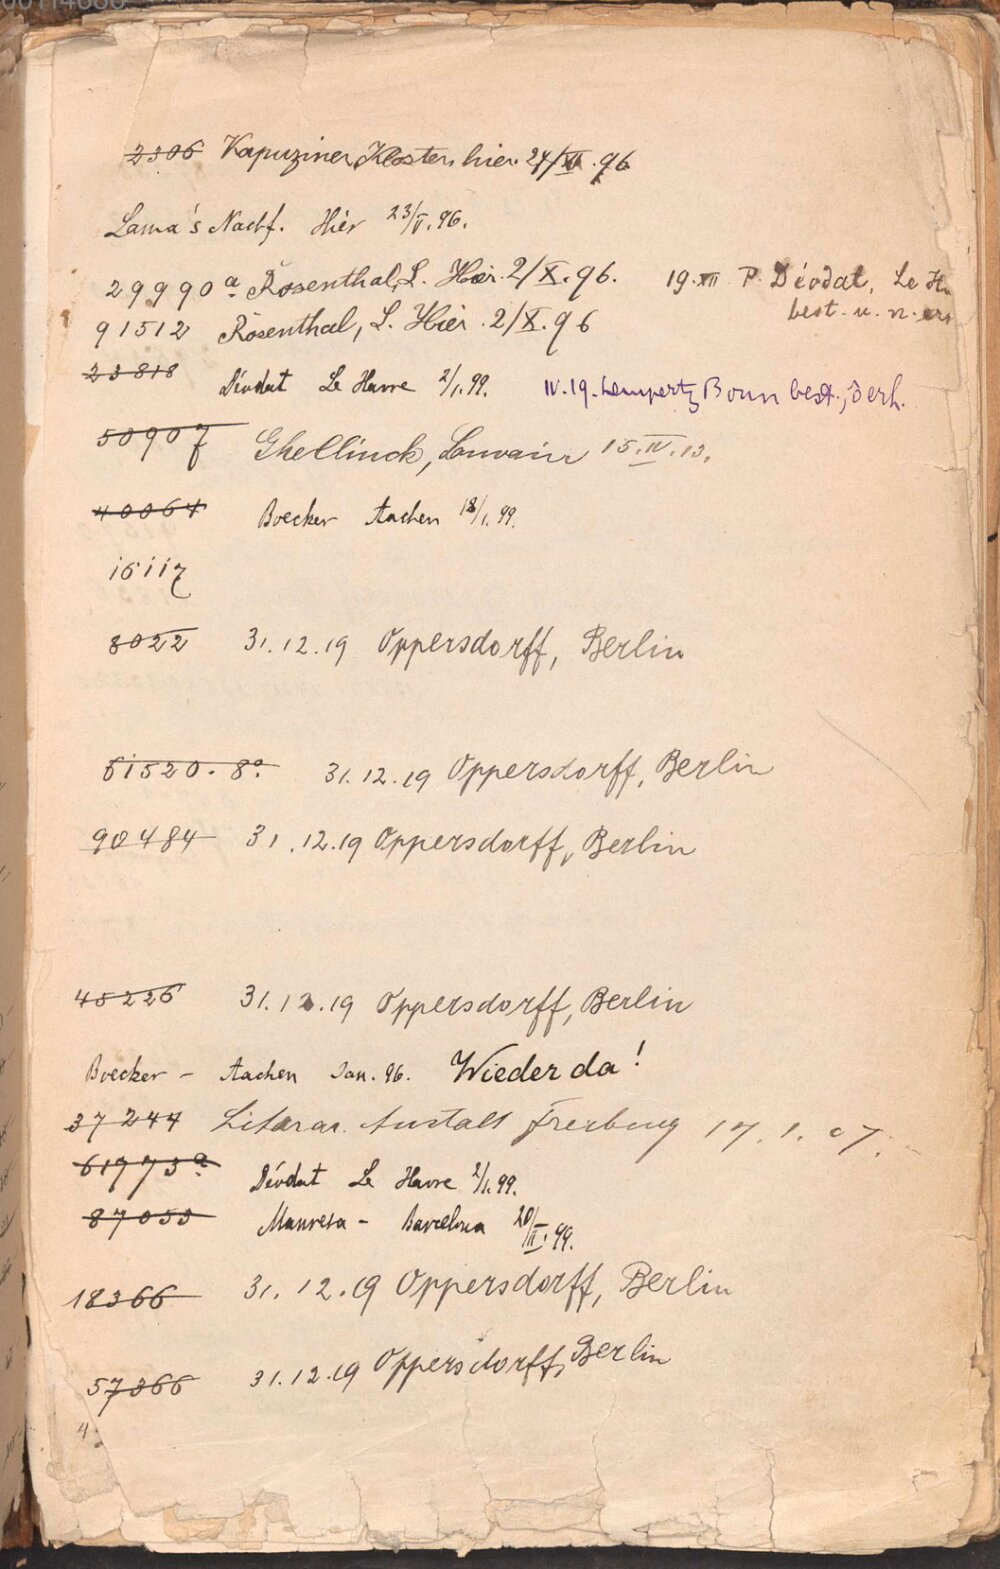 2306 Kapuziner Kloster hier 27/XI. 96
Lama's Nachf. Hier 23/V. 96.
29990 a Rosenthal, L. Hier. 2/X. 96. 19. XII P. Déodat, Le H
best. u. n. ers
91512 Rosenthal, L. Hier. 2/X. 96
23818 Déodat Le Havre 2/1. 99. IV. 19. Lempertz Bonn best., verh.
50907 Ghellinck, Louvain 15. IV. 13.
40064 Boecker Aachen 18/1. 99.
16117
8022 31.12.19 Oppersdorff, Berlin
61520. 8°. 31.12.19 Oppersdorff, Berlin
90484 31.12.19 Oppersdorff, Berlin
45226 31.12.19 Oppersdorff, Berlin
Boecker - Aachen Jan. 96. Wieder da!
37244 Literar. Anstalt Freiburg 17. 1. 07.
61973 a. Déodat Le Havre 2/1. 99.
87053 Manresa - Barcelona 20/II. 99.
18366 31.12.19 Oppersdorff, Berlin
57366 31.12.19 Oppersdorff, Berlin
4